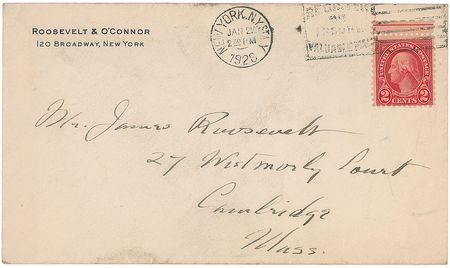 ROOSEVELT & O'CONNOR
120 BROADWAY, NEW YORK
NEW YORK, N.Y.
JAN
2 PM
1928
VALUABLE MAIL
UNITED STATES POSTAGE
2 CENTS 2
Mr. James Roosevelt
27 Westmorly Court
Cambridge
Mass.